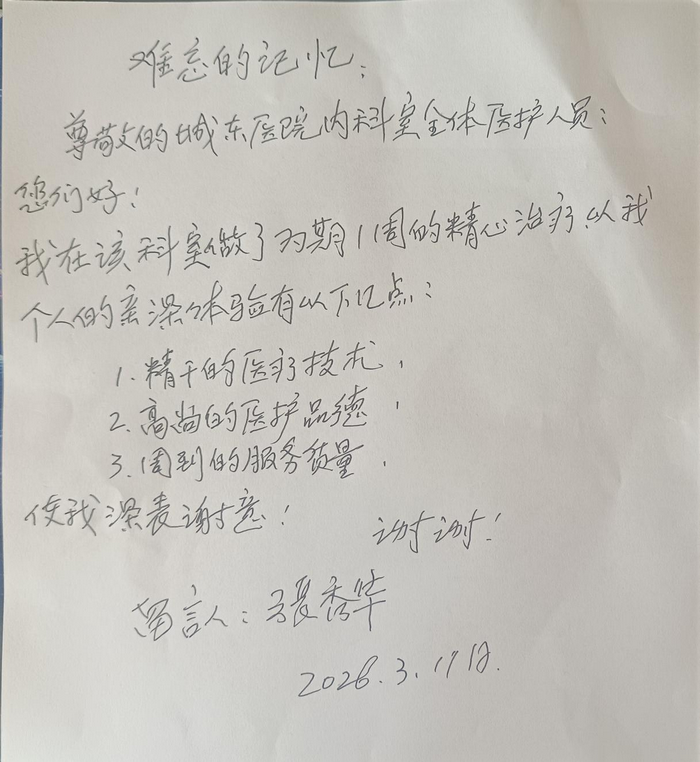 难忘的记忆:
尊敬的城东医院内科室全体医护人员:
您们好!
我在该科室做了为期11周的精心治疗.从我
个人的亲深体验有以下忆点:
1.精干的医疗技术,
2.高尚的医护品德,
3.周到的服务质量.
使我深表谢意!
谢谢!
留言人:張秀华
2026.3.17日.